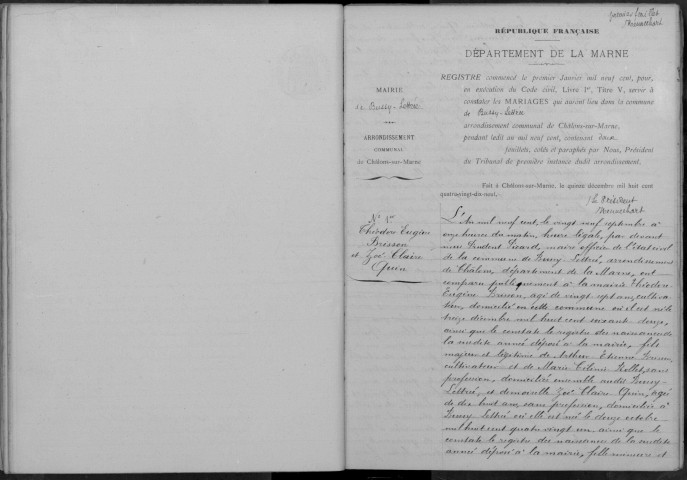 RÉPUBLIQUE FRANÇAISE
DÉPARTEMENT DE LA MARNE
REGISTRE commencé le premier Janvier mil neuf cent, pour,
en exécution du Code civil, Livre Ier, Titre V, servir à
constater les MARIAGES qui auront lieu dans la commune
de Bussy-Lettrée
arrondissement communal de Châlons-sur-Marne,
pendant ledit an mil neuf cent, contenant deux
feuillets, cotés et paraphés par Nous, Président
du Tribunal de première instance dudit arrondissement.
Fait à Châlons-sur-Marne, le quinze décembre mil huit cent
quatre-vingt-dix-neuf.
Le Président
MAIRIE
de Bussy-Lettrée
ARRONDISSEMENT
COMMUNAL
de Châlons-sur-Marne
No 1er
Théodore Eugène
Brisson
et Zoé Claire
Quin
L'An mil neuf cent, le vingt neuf septembre à
onze heures du matin, heure légale, par devant
nous Prudent Picard, maire officier de l'état civil
de la commune de Bussy Lettrée, arrondissement
de Châlons, département de la Marne, ont
comparu publiquement à la mairie Théodore
Eugène Brisson, agé de vingt sept ans, cultiva-
teur, domicilié en cette commune où il est né le
treize décembre mil huit cent soixante douze,
ainsi que le constate le registre des naissances de
la susdite année déposé à la mairie, fils
majeur et légitime de Etienne Brisson
cultivateur et de Marie Collet, sans
profession, domiciliés ensemble audit Bussy-
Lettrée, et demoiselle Zoé Claire Quin, agée
de dix huit ans, sans profession, domiciliée à
Bussy Lettrée où elle est née le douze octobre
mil huit cent quatre vingt un ainsi que le
constate le registre des naissances de la susdite
année déposé à la mairie, fille mineure et